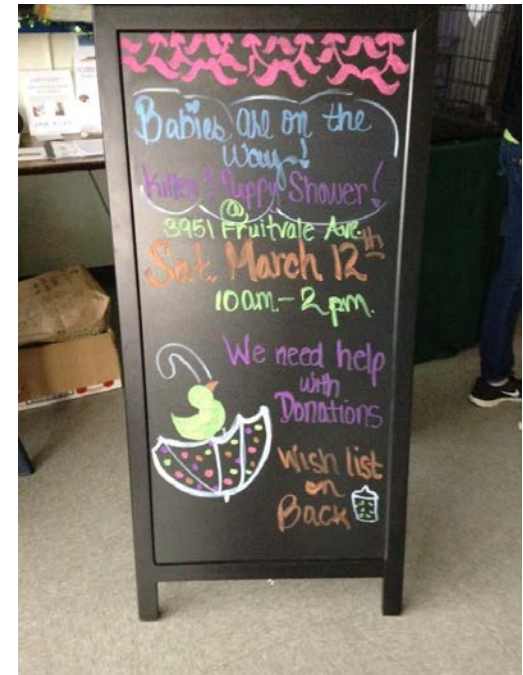 Babies are on the
Way~!
Kitten & Puppy Shower!
@
3951 Fruitvale Ave.
Sat. March 12th
10am. - 2pm.
We need help
with
Donations
Wish list
on
Back